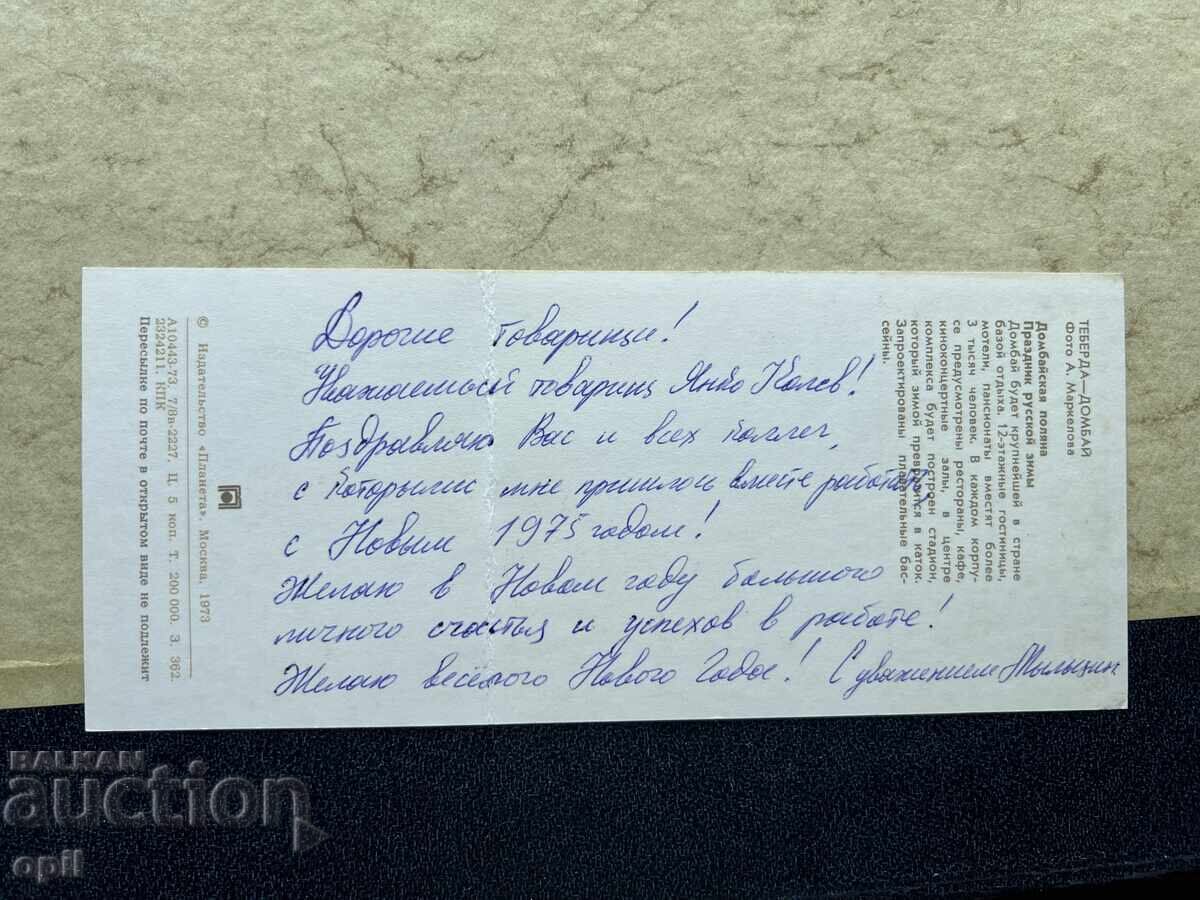 Дорогие товарищи!
Уважаемый товарищ Янко Колев!
Поздравляю Вас и всех коллег,
с которыми мне пришлось вместе работать,
с Новым 1975 годом!
Желаю в Новом году большого
личного счастья и успехов в работе!
Желаю весёлого Нового Года! С уважением
ТЕБЕРДА—ДОМБАЙ
Фото А. Маркелова
Домбайская поляна
Праздник русской зимы
Домбай будет крупнейшей в стране
базой отдыха. 12-этажные гостиницы,
мотели, пансионаты вместят более
3 тысяч человек. В каждом корпу-
се предусмотрены рестораны, кафе,
киноконцертные залы, в центре
комплекса будет построен стадион,
который зимой превратится в каток.
Запроектированы плавательные бас-
сейны.
© Издательство «Планета». Москва, 1973
А10443-73. 7/8в-2227. Ц. 5 коп. Т. 200 000. З. 362.
232421. КПК
Пересылке по почте в открытом виде не подлежит
BALKAN
auction
opil